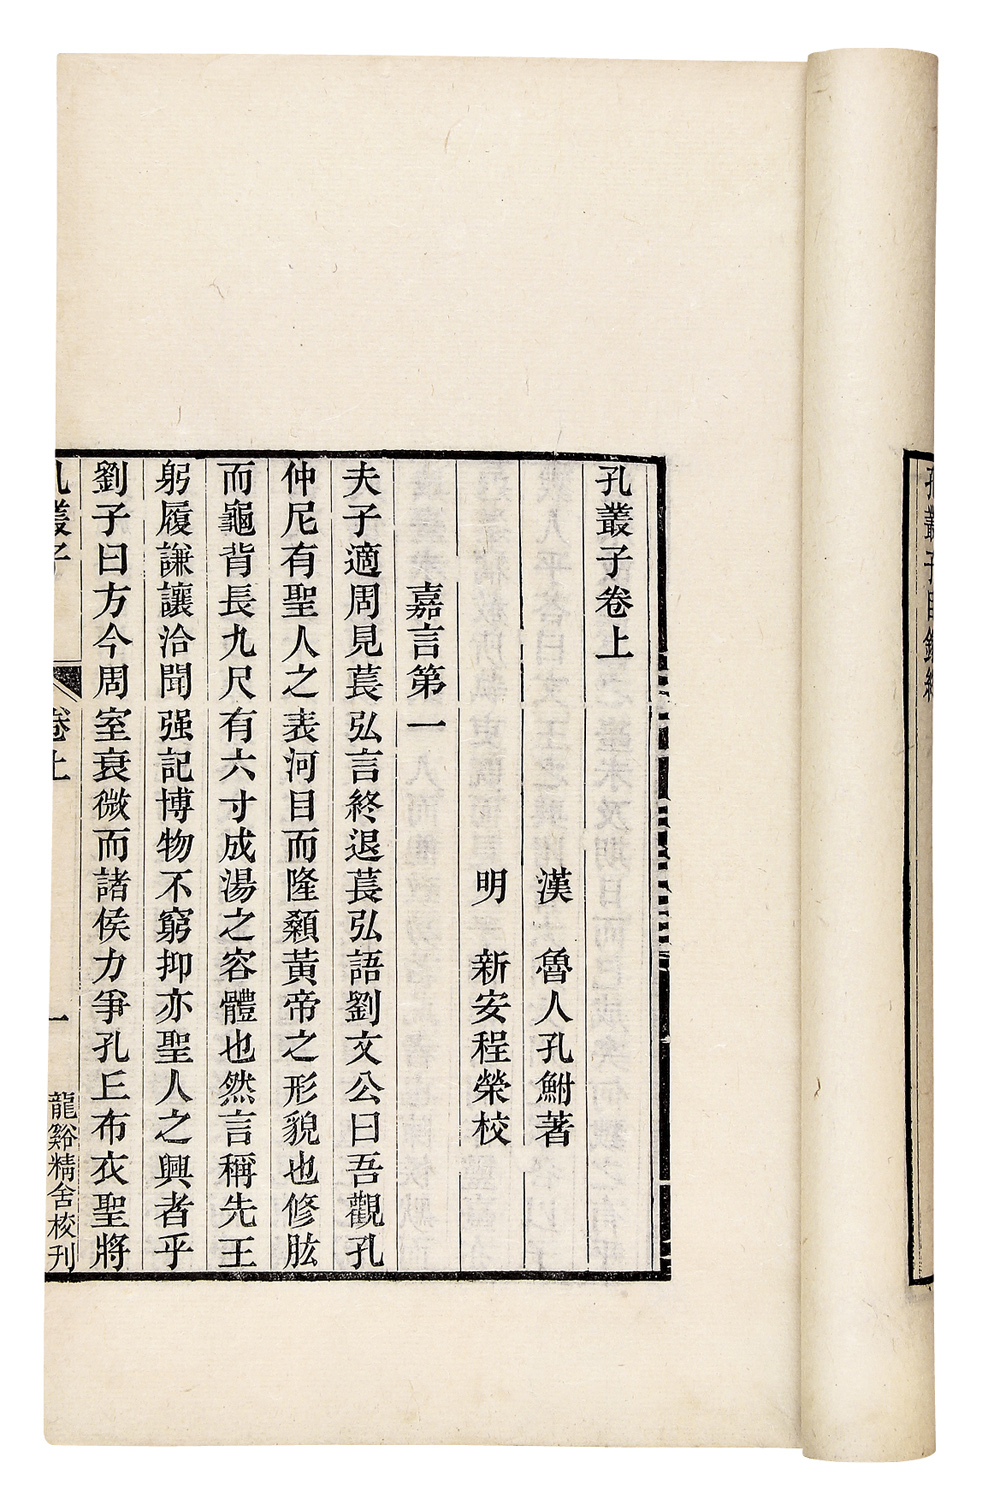 孔叢子目錄終
孔叢子卷上
漢　魯人孔鮒著
明　新安程榮校
嘉言第一
夫子適周見萇弘言終退萇弘語劉文公曰吾觀孔
仲尼有聖人之表河目而隆顙黃帝之形貌也修肱
而龜背長九尺有六寸成湯之容體也然言稱先王
躬履謙讓洽聞强記博物不窮抑亦聖人之興者乎
劉子曰方今周室衰微而諸侯力爭孔丘布衣聖將
孔叢子
卷上
一
龍谿精舍校刊